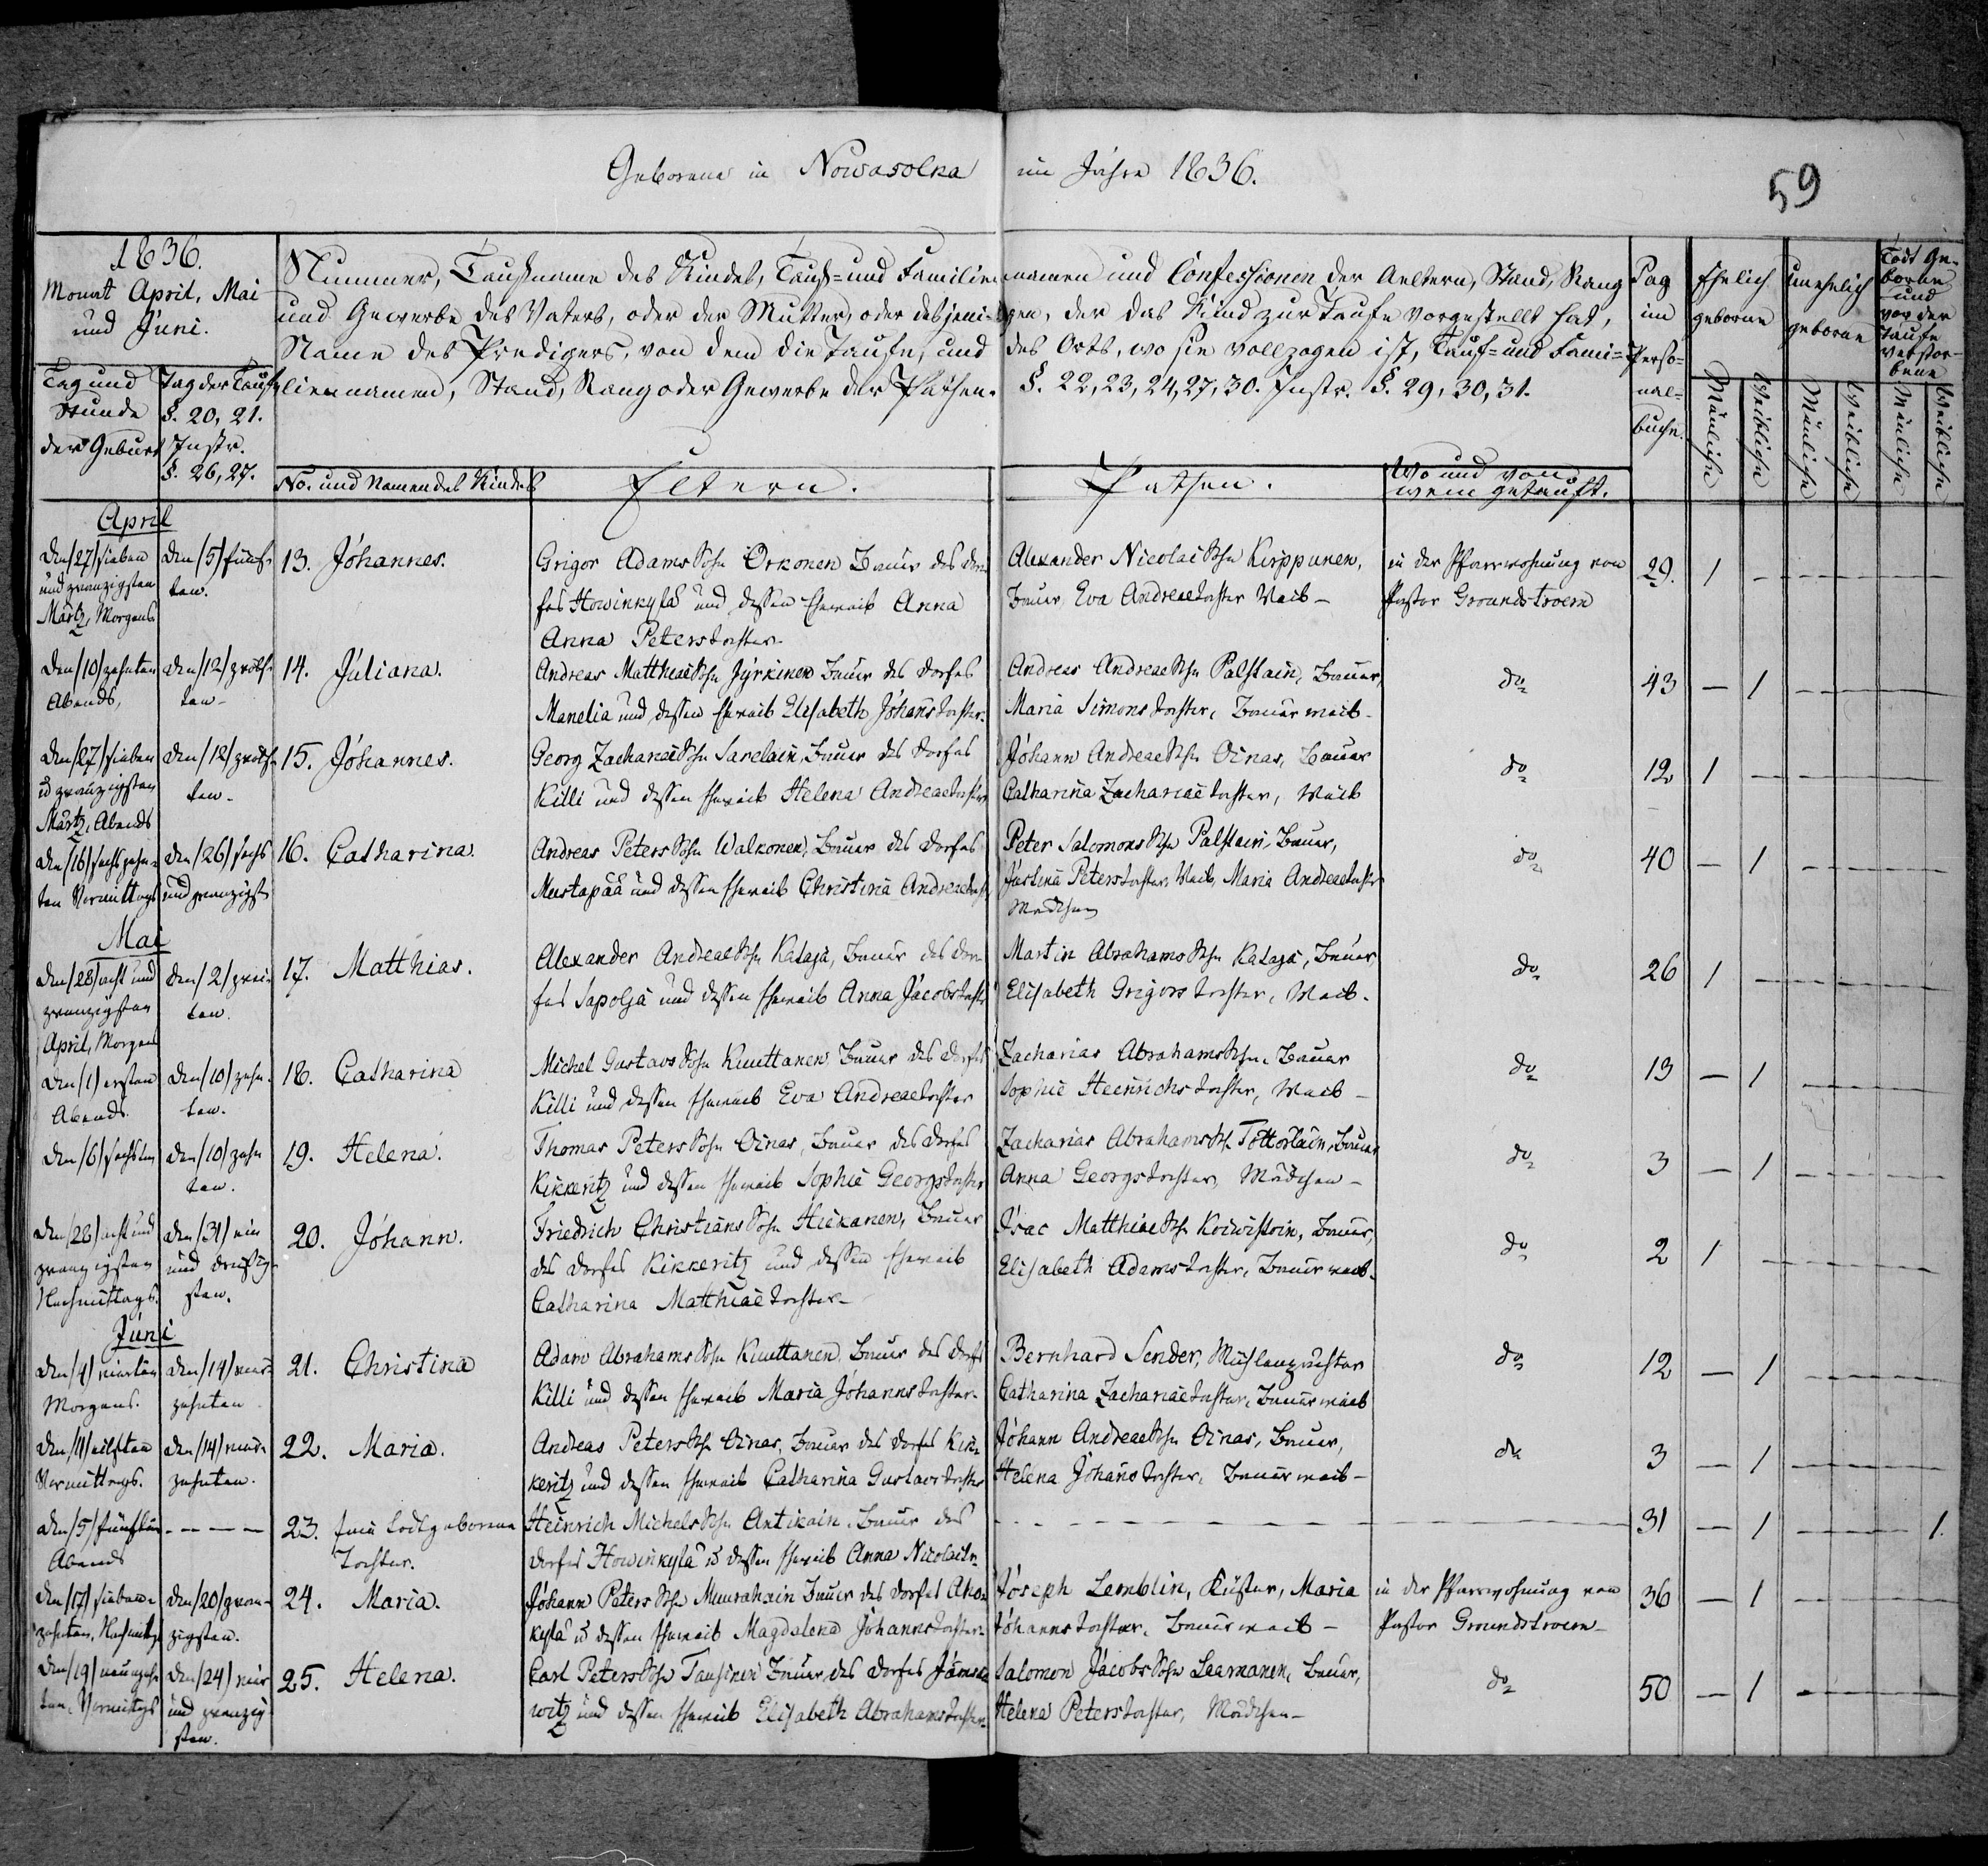 Geborene in Nowasolka im Jahre 1836.
59
1836.
Monat April, Mai
und Juni.
Tag und
Stunde
der Geburt
Tag der Taufe
§. 20, 21.
Instr.
§. 26, 27.
Nummer, Taufname des Kindes, Tauf= und Familiennamen und Confessionen der Aeltern, Stand, Rang
und Gewerbe des Vaters, oder der Mutter, oder desjenigen, der das Kind zur Taufe vorgestellt hat,
Name des Predigers, von dem die Taufe, und des Orts, wo sie vollzogen ist, Tauf= und Fami=
liennamen, Stand, Rang oder Gewerbe der Pathen. §. 22, 23, 24, 27, 30. Instr. §. 29, 30, 31.
No. und Namen des Kindes
Eltern.
Pathen.
Wo und von
wem getauft.
Pag
im
Perso=
nal=
buche.
Ehelich
geborene
unehelich
geborene
Todt Ge-
borene
und
vor der
Taufe
verstor-
bene
Männliche
Weibliche
Männliche
Weibliche
Männliche
Weibliche
April
den /27/ sieben
und zwanzigsten
Märtz, Morgens.
den /5/ fünf-
ten.
13. Johannes.
Grigor Adams Sohn Orkonen Bauer des Dor-
fes Howinkylä und dessen Eheweib Anna
Anna Peterstochter.
Alexander Nicolai Sohn Kirppunen,
Bauer, Eva Andreaetochter Weib –
in der Pfarrwohnung von
Pastor Groundstroem
29. 1 –
den /10/ zehnten
Abends,
den /12/ zwölf-
ten –
14. Juliana.
Andreas Matthiae Sohn Jyrkinen Bauer des Dorfes
Manelia und dessen Eheweib Elisabeth Johanstochter.
Andreas Andreae Sohn Palstain, Bauer,
Maria Simonstochter, Bauerweib.
do
43 – 1
den /27/ sieben
u zwanzigsten
Märtz, Abends
den /12/ zwölf-
ten.
15. Johannes.
Georg Zachariae Sohn Sarelain, Bauer des Dorfes
Killi und dessen Eheweib Helena Andreaetochter
Johann Andreae Sohn Oinas, Bauer
Catharina Zachariaetochter, Weib
do
12 1 –
den /16/ sechszehn-
ten Vormittags
den /26/ sechs
und zwanzigst
16. Catharina.
Andreas Peters Sohn Walkonen, Bauer des Dorfes
Mustapää und dessen Eheweib Christina Andreaetocht
Peter Salomons Sohn Palstain, Bauer,
Justina Peterstochter, Weib, Maria Andreaetochter
Mädchen
do
40 – 1
Mai
den /28/ acht und
zwanzigsten
April, Morgens
den /2/ zwei-
ten.
17. Matthias.
Alexander Andreae Sohn Kataja, Bauer des Dor-
fes Sapolja und dessen Eheweib Anna Jacobstochter
Martin Abrahams Sohn Kataja, Bauer
Elisabeth Grigorstochter, Weib.
do
26 1 –
den /1/ ersten
Abends.
den /10/ zehn-
ten.
18. Catharina
Michel Gustavs Sohn Knuttanen Bauer des Dorfes
Killi und dessen Eheweib Eva Andreaetochter
Zacharias Abrahams Sohn, Bauer
Sophie Heinrichstochter, Weib –
do
13 – 1
den /6/ sechsten
den /10/ zehn
ten.
19. Helena.
Thomas Peters Sohn Oinas, Bauer des Dorfes
Kikkeritz und dessen Eheweib Sophie Georgstochter
Zacharias Abrahams Sohn Tottorlain, Bauer
Anna Georgstochter, Mädchen –
do
3 – 1
den /28/ acht und
zwanzigsten
Nachmittags.
den /31/ ein
und dreissig-
sten.
20. Johann.
Friedrich Christians Sohn Hiekanen, Bauer
des Dorfes Kikkeritz und dessen Eheweib
Catharina Matthiaetochter –
Isac Matthiae Sohn Koiwistoin, Bauer,
Elisabeth Adamstochter, Bauerweib.
do
2 1 –
Juni
den /4/ vierten
Morgens.
den /14/ vier-
zehnten
21. Christina
Adam Abrahams Sohn Knuttanen, Bauer des Dorfes
Killi und dessen Eheweib Maria Johannstochter.
Bernhard Sender,
Catharina Zachariaetochter, Bauerweib
do
12 – 1
den /11/ eilften
Vormittags.
den /14/ vier-
zehnten.
22. Maria.
Andreas Peters Sohn Oinas, Bauer des Dorfes Kik-
keritz und dessen Eheweib Catharina Gustavstochter
Johann Andreae Sohn Oinas, Bauer,
Helena Johanstochter, Bauerweib –
do
3 – 1
den /5/ fünften
Abends
– – – –
23. Eine todtgeborene
Tochter.
Heinrich Michels Sohn Antikain, Bauer des
Dorfes Howinkylä u dessen Eheweib Anna Nicolait.
31 – 1 – 1.
den /17/ sieben-
zehnten, Nachmittgs
den /20/ zwan-
zigsten.
24. Maria.
Johann Peters Sohn Muurahain Bauer des Dorfes Aho-
kylä u dessen Eheweib Magdalena Johannstochter.
Joseph Lemblin, Küster, Maria
Johannstochter, Bauerweib –
in der Pfarrwohnung von
Pastor Groundstroem –
36 – 1
den /19/ neunzehn
ten, Vormittgs
den /24/ vier
und zwanzig
sten.
25. Helena.
Carl Peters Sohn Tausinen Bauer des Dorfes Jämse-
witz und dessen Eheweib Elisabeth Abrahamstochter.
Salomon Jacobs Sohn Laamanen, Bauer,
Helena Peterstochter, Mädchen –
do
50 – 1